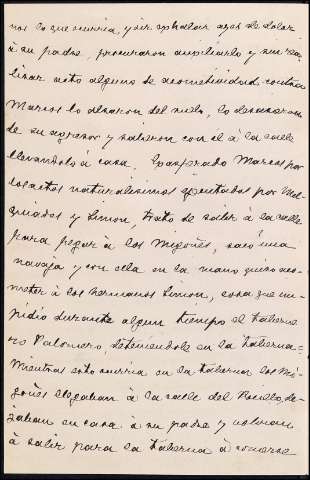 nos lo que ocurria, y oir exhalar ayes de dolor
á su padre, procuraron auxiliarlo y sin rea-
lizar acto alguno de acometividad contra
Marcos lo alzaron del suelo, lo separaron
de su agresor y salieron con el á la calle
llevandolo á casa. Exasperado Marcos por
los actos naturalisimos ejecutados por Mel-
quiades y Simon, trató de salir á la calle
para pegar á los Migoñes, sacó una
navaja y con ella en la mano quiso aco-
meter á los hermanos Simon, cosa que im-
pidio durante algun tiempo el taberne
ro Palomero, deteniendole en la taberna=
Mientras esto ocurria en la taberna los Mi-
goñes llegaban á la calle del Rosillo, de-
jaban en casa á su padre y volvian
á salir para la taberna á